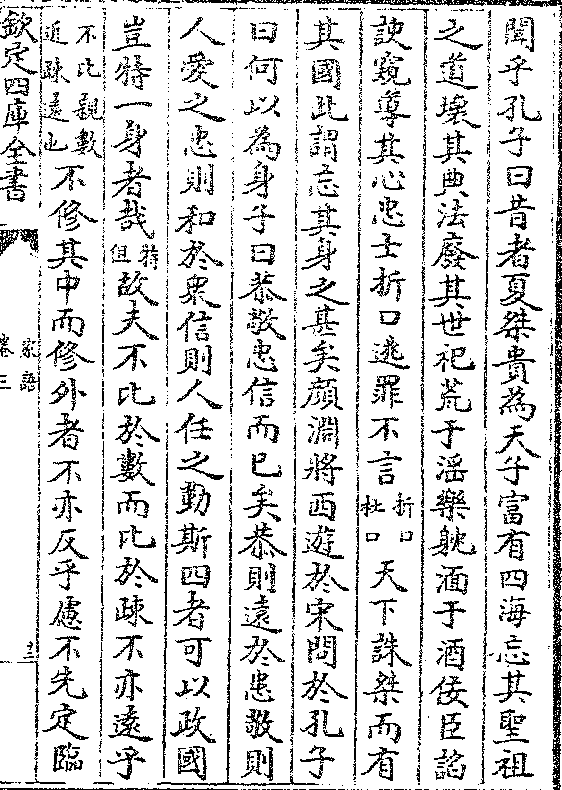 聞乎孔子曰昔者夏桀貴為天子富有四海忘其聖祖
之道壊其典法廢其世祀荒于滛樂躭湎于酒佞臣諂
諛窺導其心忠士折口逃罪不言折口杜口天下誅桀而有
其國此謂忘其身之甚矣顔淵將西遊於宋問於孔子
曰何以為身子曰恭敬忠信而已矣恭則遠於患敬則
人愛之忠則和於衆信則人任之勤斯四者可以政國
豈特一身者哉特但故夫不比於數而比於疎不亦遠乎
不比親數近疎逺也不修其中而修外者不亦反乎慮不先定臨
欽定四庫全書
家語
卷三
十三